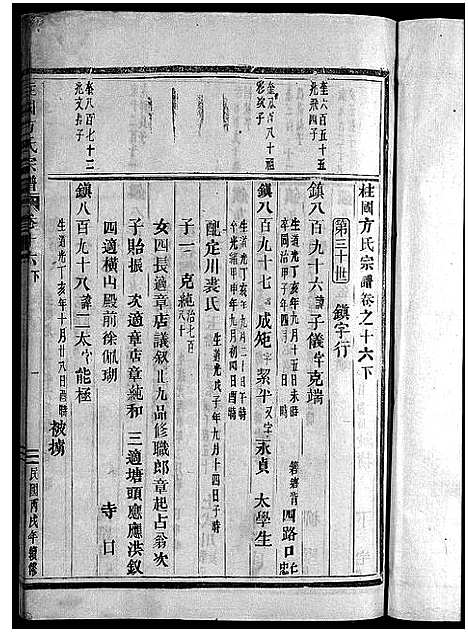 柱國方氏宗譜卷之十六下
第三十世 鎮字行
奎六百五十五
兆飛四子
鎮八百九十六 諱子儀字克端
生道光丁亥年九月十五日未時
卒同治甲子年四月 日未時
四路口
鎮八百九十七 成矩字絜平又字永貞 太學生
生道光丁亥年九月二十日午時
卒光緒甲申年九月初四日酉時
配定川裘氏 生道光戊子年九月十四日子時
子一 克純 治七百八十
女四長適章店議敘正九品修職郎章起占翁次
子貽振 次適章店章純和 三適塘頭應應洪釵
四適橫山殿前徐佩瑚 寺口
奎八百七十三
兆文長子
鎮八百九十八 諱二太字能極
生道光丁亥年十月廿八日酉時 被擄
柱國方氏宗譜 卷十六下
一
民國丙戌年續修